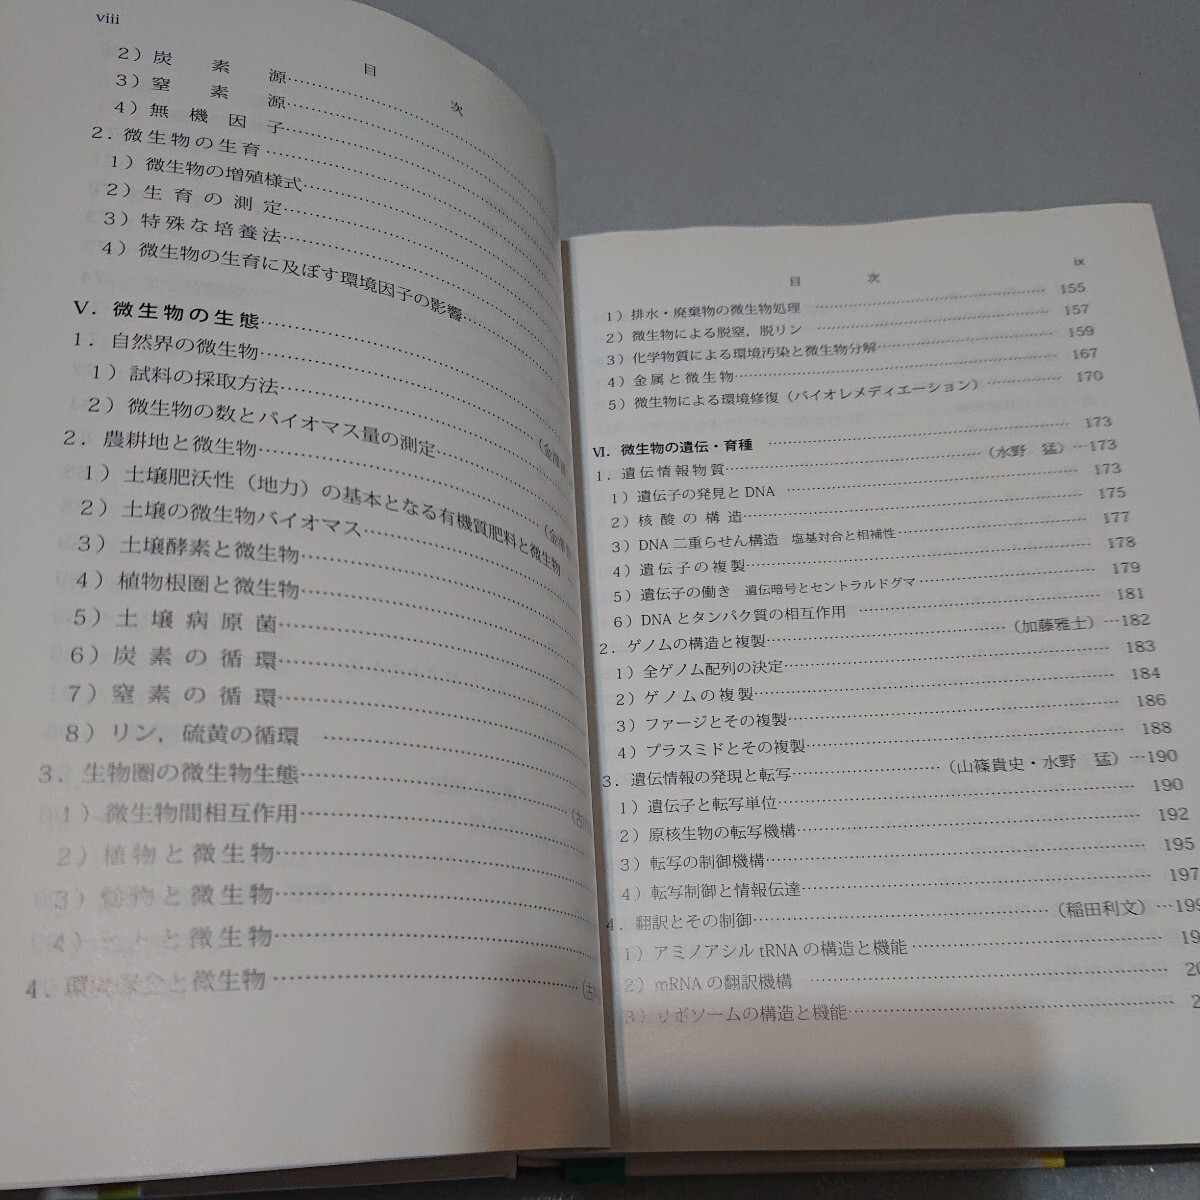 viii
目次
2）炭素源
3）窒素源
4）無機因子
2．微生物の生育
1）微生物の増殖様式
2）生育の測定
3）特殊な培養法
4）微生物の生育に及ぼす環境因子の影響
V．微生物の生態
1．自然界の微生物
1）試料の採取方法
2）微生物の数とバイオマス量の測定
2．農耕地と微生物
1）土壌肥沃性（地力）の基本となる有機質肥料と微生物
2）土壌の微生物バイオマス
3）土壌酵素と微生物
4）植物根圏と微生物
5）土壌病原菌
6）炭素の循環
7）窒素の循環
8）リン，硫黄の循環
3．生物圏の微生物生態
1）微生物間相互作用
2）植物と微生物
3）動物と微生物
4）ヒトと微生物
4．環境保全と微生物
目次 ix
1）排水・廃棄物の微生物処理 155
2）微生物による脱窒，脱リン 157
3）化学物質による環境汚染と微生物分解 159
4）金属と微生物 167
5）微生物による環境修復（バイオレメディエーション） 170
VI．微生物の遺伝・育種 173
1．遺伝情報物質 （水野 猛）…173
1）遺伝子の発見とDNA 173
2）核酸の構造 175
3）DNA二重らせん構造 塩基対合と相補性 177
4）遺伝子の複製 178
5）遺伝子の働き 遺伝暗号とセントラルドグマ 179
6）DNAとタンパク質の相互作用 181
2．ゲノムの構造と複製 （加藤雅士）…182
1）全ゲノム配列の決定 183
2）ゲノムの複製 184
3）ファージとその複製 186
4）プラスミドとその複製 188
3．遺伝情報の発現と転写 （山篠貴史・水野 猛）…190
1）遺伝子と転写単位 190
2）原核生物の転写機構 192
3）転写の制御機構 195
4）転写制御と情報伝達 197
4．翻訳とその制御 （稲田利文）…199
1）アミノアシルtRNAの構造と機能
2）mRNAの翻訳機構
3）リボソームの構造と機能